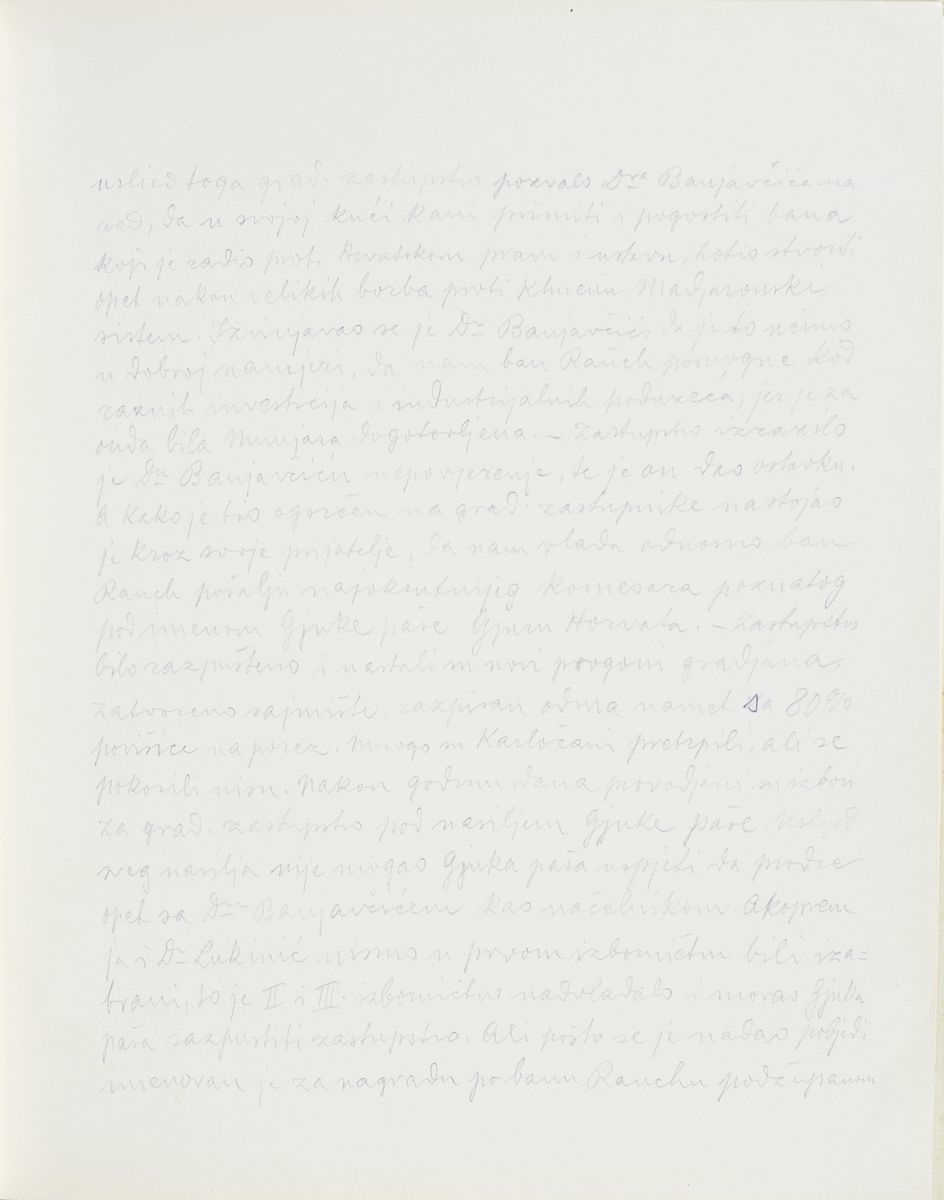 uslied toga grad. zastupstvo pozvalo Dra Banjavčića na
red, da u svojoj kući kani primiti i pogostiti bana
koji je radio proti Hrvatskom pravu i ustavu, hotio stvoriti
opet nakon velikih borba proti Khuenu Madjaronski
sistem. Izvinjavao se je Dr Banjavčić, da je to učinio
u dobroj namjeri, da nam ban Rauch pomogne kod
raznih investicija i industrijalnih poduzeća, jer je za
onda bila Munjara dogotovljena. – Zastupstvo izrazilo
je Dru Banjavčiću nepovjerenje, te je on dao ostavku.
A kako je bio ogorčen na grad. zastupnike nastojao
je kroz svoje prijatelje, da nam vlada odnosno ban
Rauch pošalju najokrutnijeg komesara poznatog
pod imenom Gjuke paše Gjuru Horvata. – Zastupstvo
bilo razpušteno i nastali su novi progoni gradjana.
Zatvoreno sajmište, razpisan odma namet sa 80%
povišice na porez. Mnogo su Karločani pretrpili, ali se
pokorili nisu. Nakon godinu dana provadjani su izbori
za grad. zastupstvo pod nasiljem Gjuke paše. Uslijed
sveg nasilja nije mogao Gjuka paša uspjeti da prodre
opet sa Drom Banjavčićem kao načelnikom. Akoprem
ja i Dr Lukinić nismo u prvom izborničtvu bili iza=
brani, to je II i III. izborničtvo nadvladalo i morao Gjuka
paša razpustiti zastupstvo. Ali pošto se je nadao pobjedi
imenovan je za nagradu po banu Rauchu podžupanom